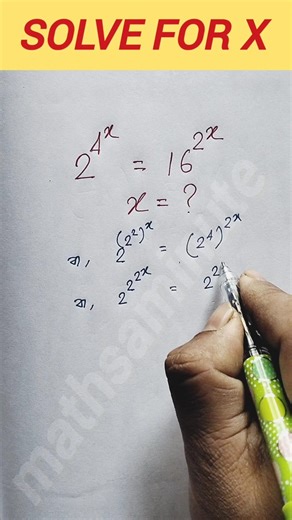 SOLVE FOR X
2^4^x = 16^2x
x = ?
বা, 2^(2^2)^x = (2^4)^2x
বা, 2^2^2x = 2^2
mathsaminute